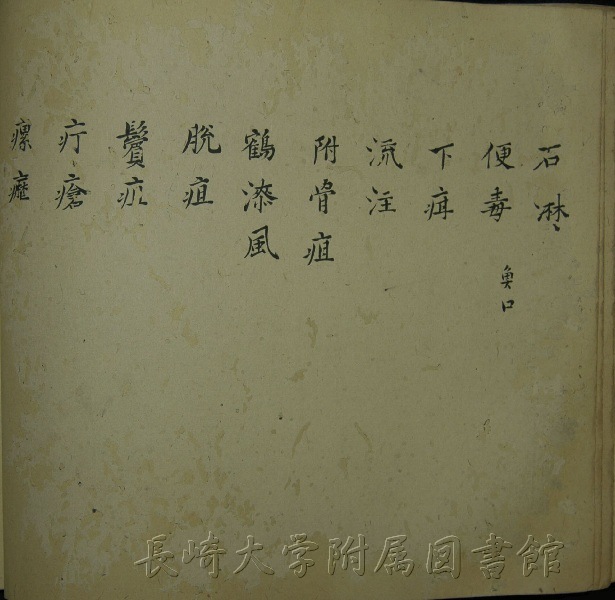 石淋
便毒 魚口
下疳
流注
附骨疽
鶴漆風
脱疽
鬢疽
疔瘡
瘰癧
長崎大学附属図書館